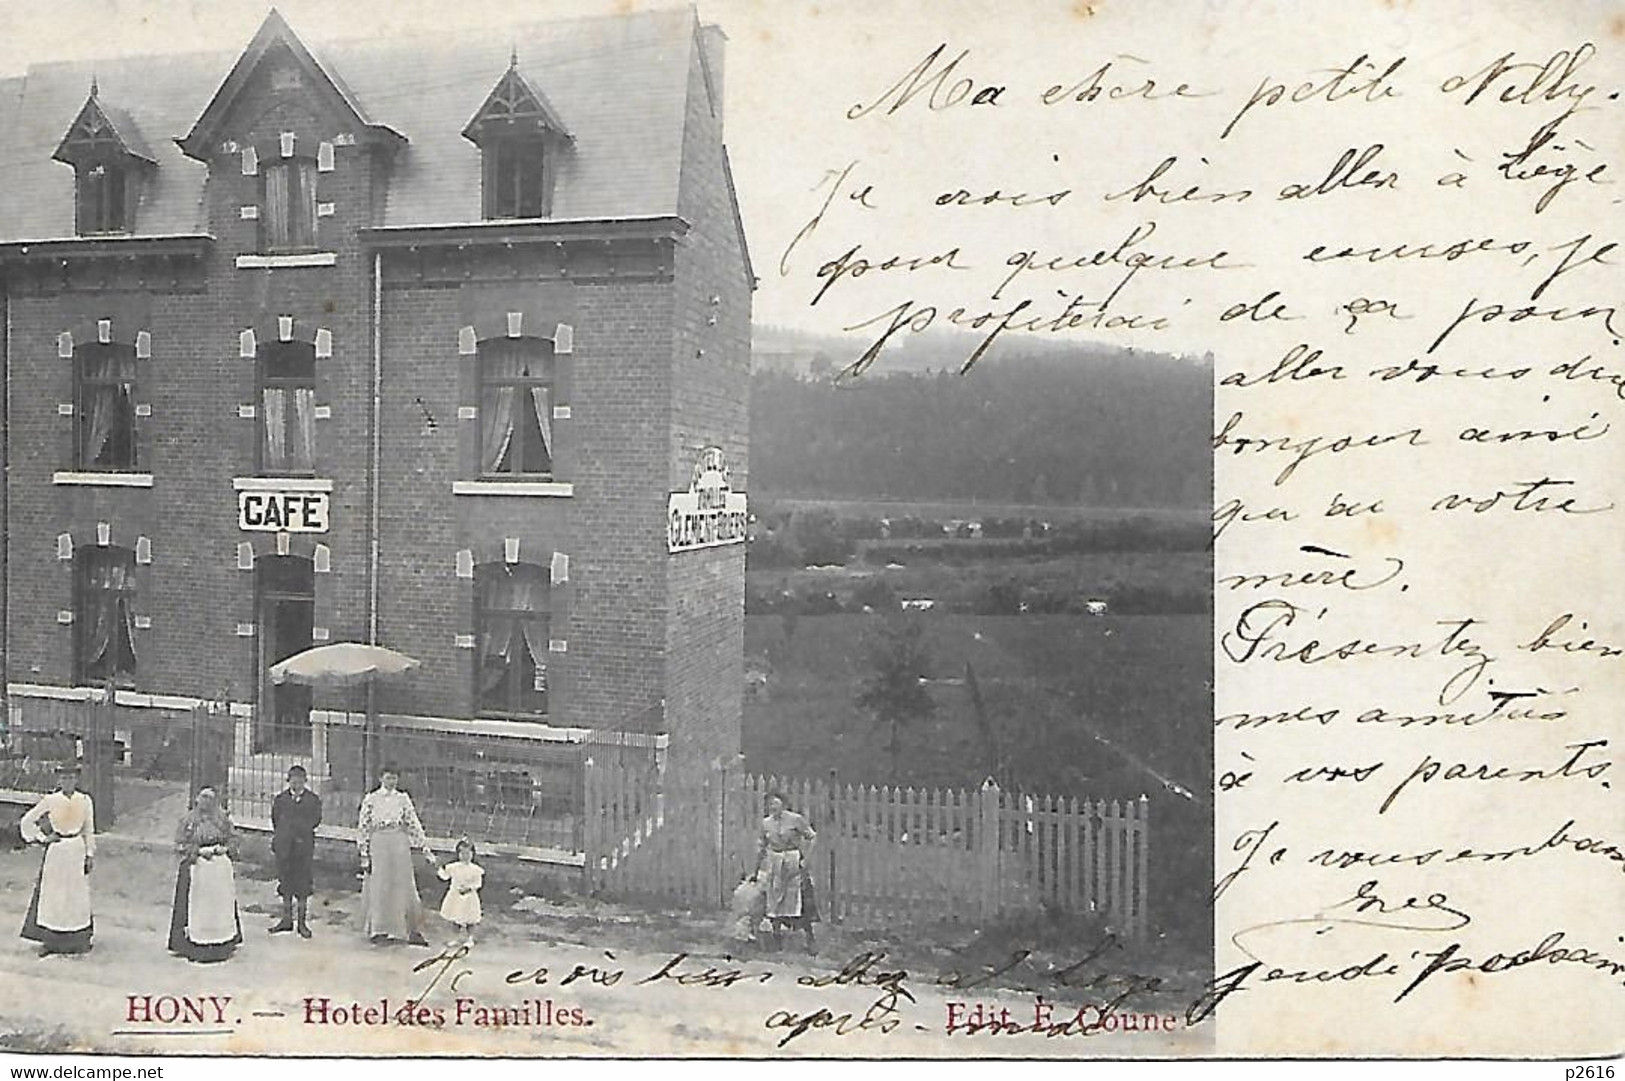 Ma chère petite Nelly.
Je crois bien aller à Liège
pour quelque courses, je
profiterai de ça pour
aller vous dire
bonjour ainsi
qu'au votre
mère.
Présentez bien
mes amitiés
à vos parents.
Je vous embras
jeudi prochain
Je crois bien aller à Liège
après-midi
CAFÉ
HOTEL DU
TAILLET
CLEMENT
HONY. — Hotel des Familles.
Edit. E. Coune
delcampe.net
p2616